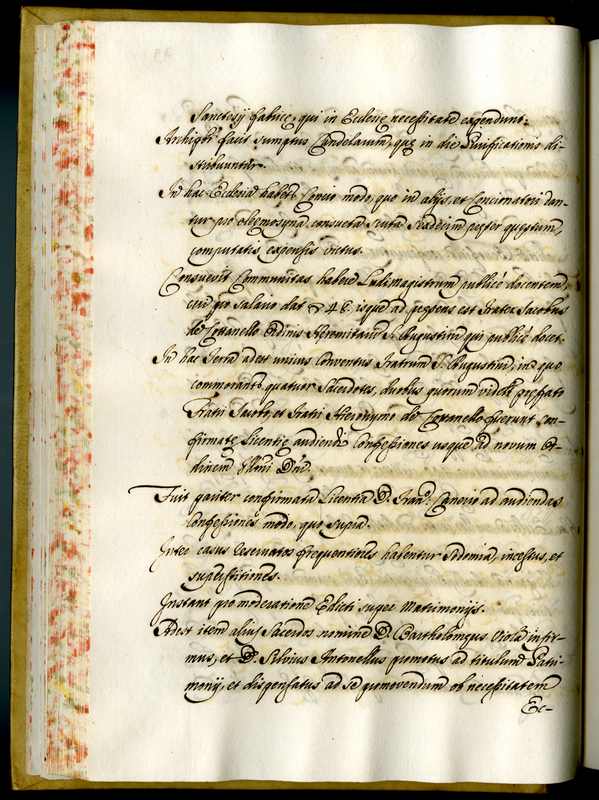 Sanctissimi fabrice, qui in Ecclesie necessitate expendunt.
Archipbr facit sumptus Candelarum, que in die Purificationis di-
stribuuntur.
In hac Ecclesia habetr Concio modo, quo in alijs, et Concionatori dan-
tur pro eleemosyna consueta scuta sexdecim preter questum,
computatis expensis victus.
Consuevit Communitas habere Ludimagistrum publicè docentem,
cui pro salario dat isque ad presens est frater Jacobus
de Ordinis Heremitarū S. Augustini qui publicè docet.
In hac Terra adest unius Conventus fratrum S. Augustini, in quo
commorantr quatuor Sacerdotes, duobus quorum videlt prefato
fratri Jacobo, et fratri Hieronymo de fuerunt con-
firmate licentie audiendi Confessiones usque ad novum Or-
dinem Illmi Dni.
Fuit pariter confirmata Licentia D. Franco Canovio ad audiendas
confessiones modo, quo supra.
Inter casus reservatos frequentiores habentur Sodomia, incestus, et
superstitiones.
Instant pro moderatione Edicti super Matrimonijs.
Adest item alius Sacerdos nomine D. Bartholomeus Viola infir-
mus, et D. Silvius Antonellus promotus ad titulum Patri-
monij, et dispensatus ad se promovendum ob necessitatem
Ec-